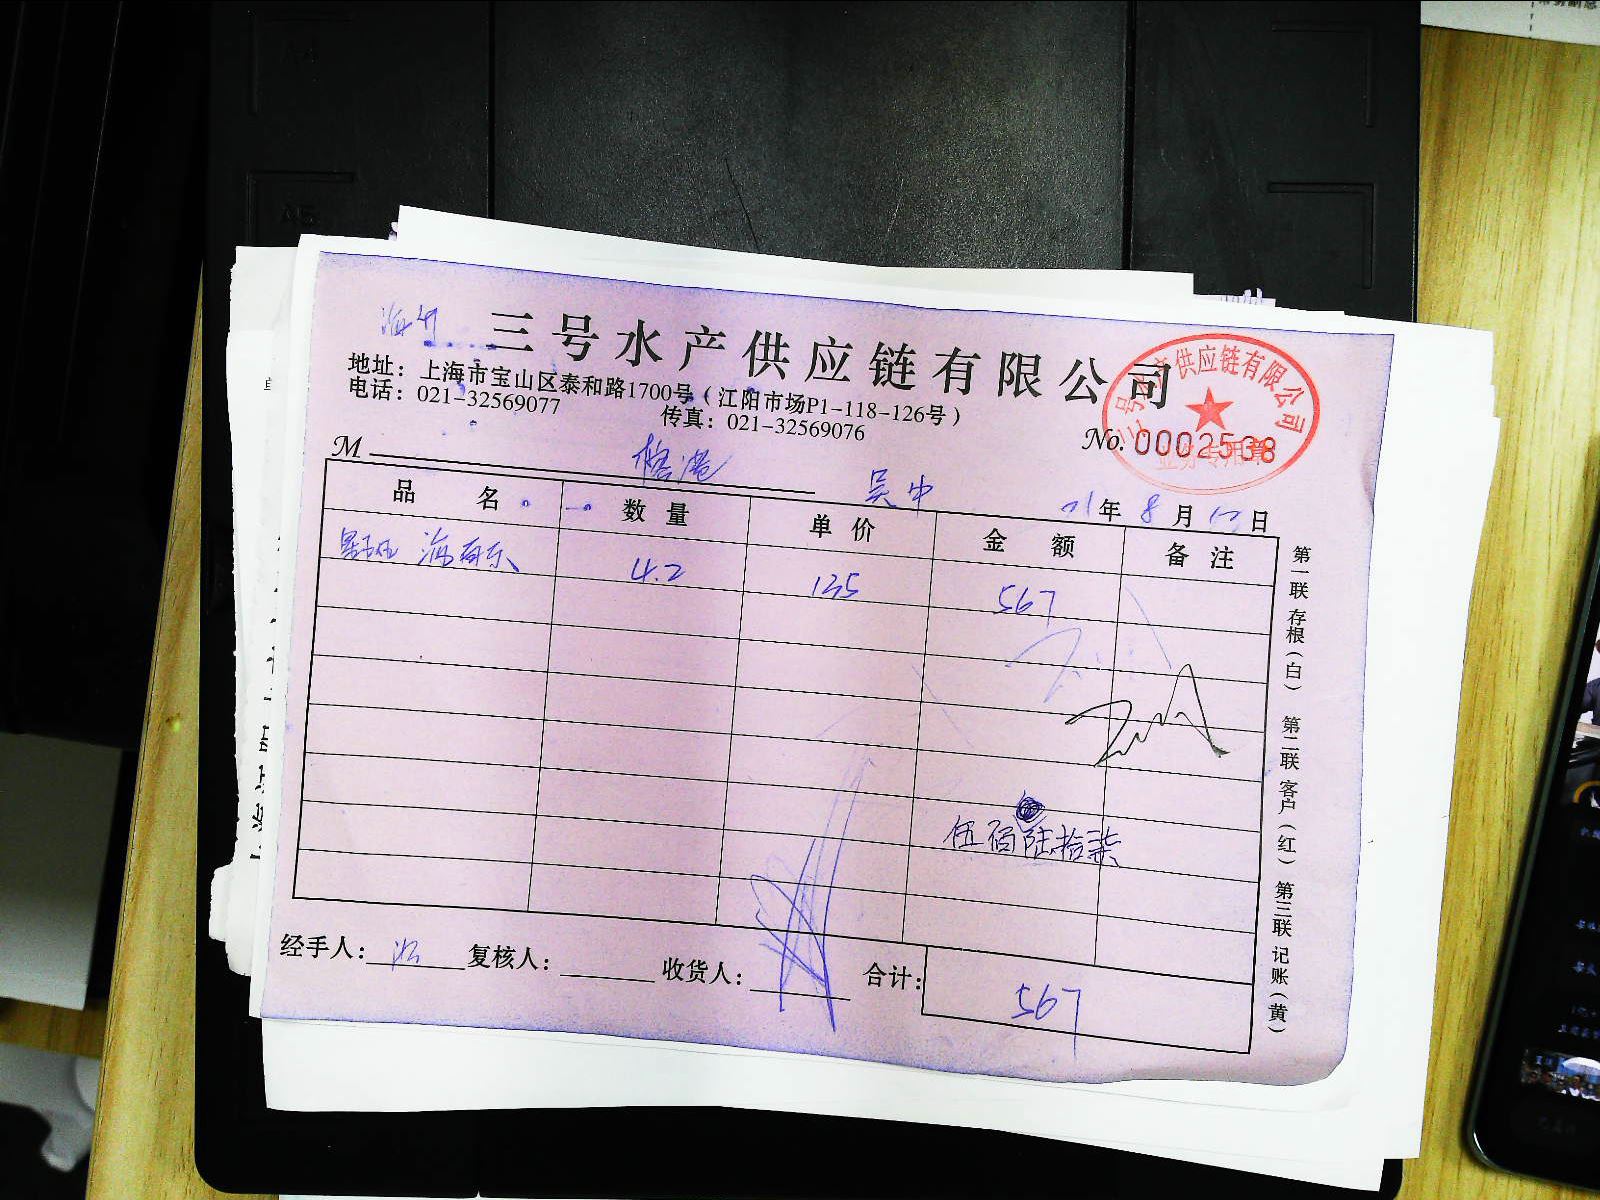 三号水产供应链有限公司
地址：上海市宝山区泰和路1700号（江阳市场P1-118-126号）
电话：021-32569077 传真：021-32569076
三号水产供应链有限公司
业务专用章
No. 0002538
M
吴中 21年8月 日
品名 数量 单价 金额 备注
4.2 135 567
伍佰陆拾柒
经手人： 复核人： 收货人： 合计： 567
第一联 存根（白） 第二联 客户（红） 第三联 记账（黄）